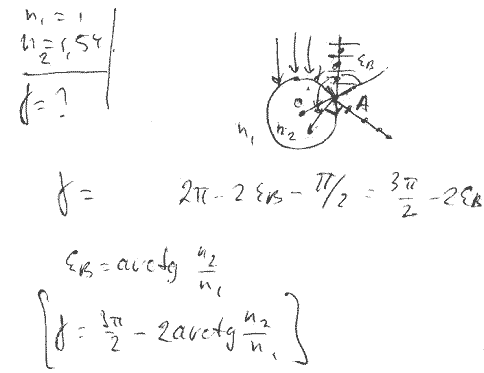 n₁ = 1
n₂ = 1,54
γ = ?
ε_B
O A
n₁ n₂
γ = 2π - 2ε_B - π/2 = 3π/2 - 2ε_B
ε_B = arctg n₂/n₁
[γ = 3π/2 - 2arctg n₂/n₁]